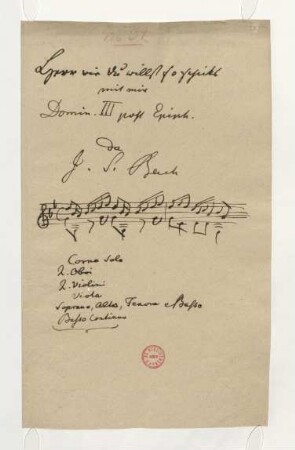 Herr wie du willst so schickt
mit mir
Domin. III post Epiph.
da
J. S. Bach
Corno Solo
2. Oboi
2. Violini
Viola
Soprano, Alto, Tenore e Basso
Basso Continuo